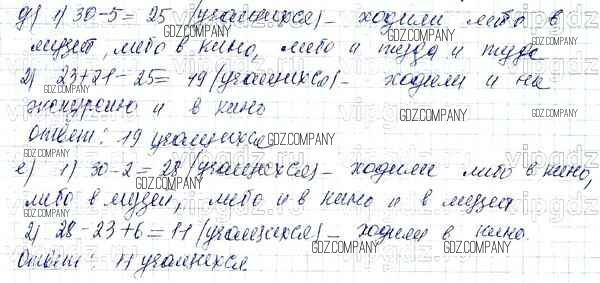 д) 1) 30-5= 25 (учащихся) - ходили либо в
музей, либо в кино, либо и туда и туда
2) 23+21-25= 19 (учащихся) - ходили и на
экскурсию и в кино
Ответ: 19 учащихся
е) 1) 30-2=28 (учащихся) - ходили либо в кино,
либо в музей, либо и в кино и в музей
2) 28-23+6=11 (учащихся) - ходили в кино.
Ответ: 11 учащихся
GDZ.COMPANY
vipgdz